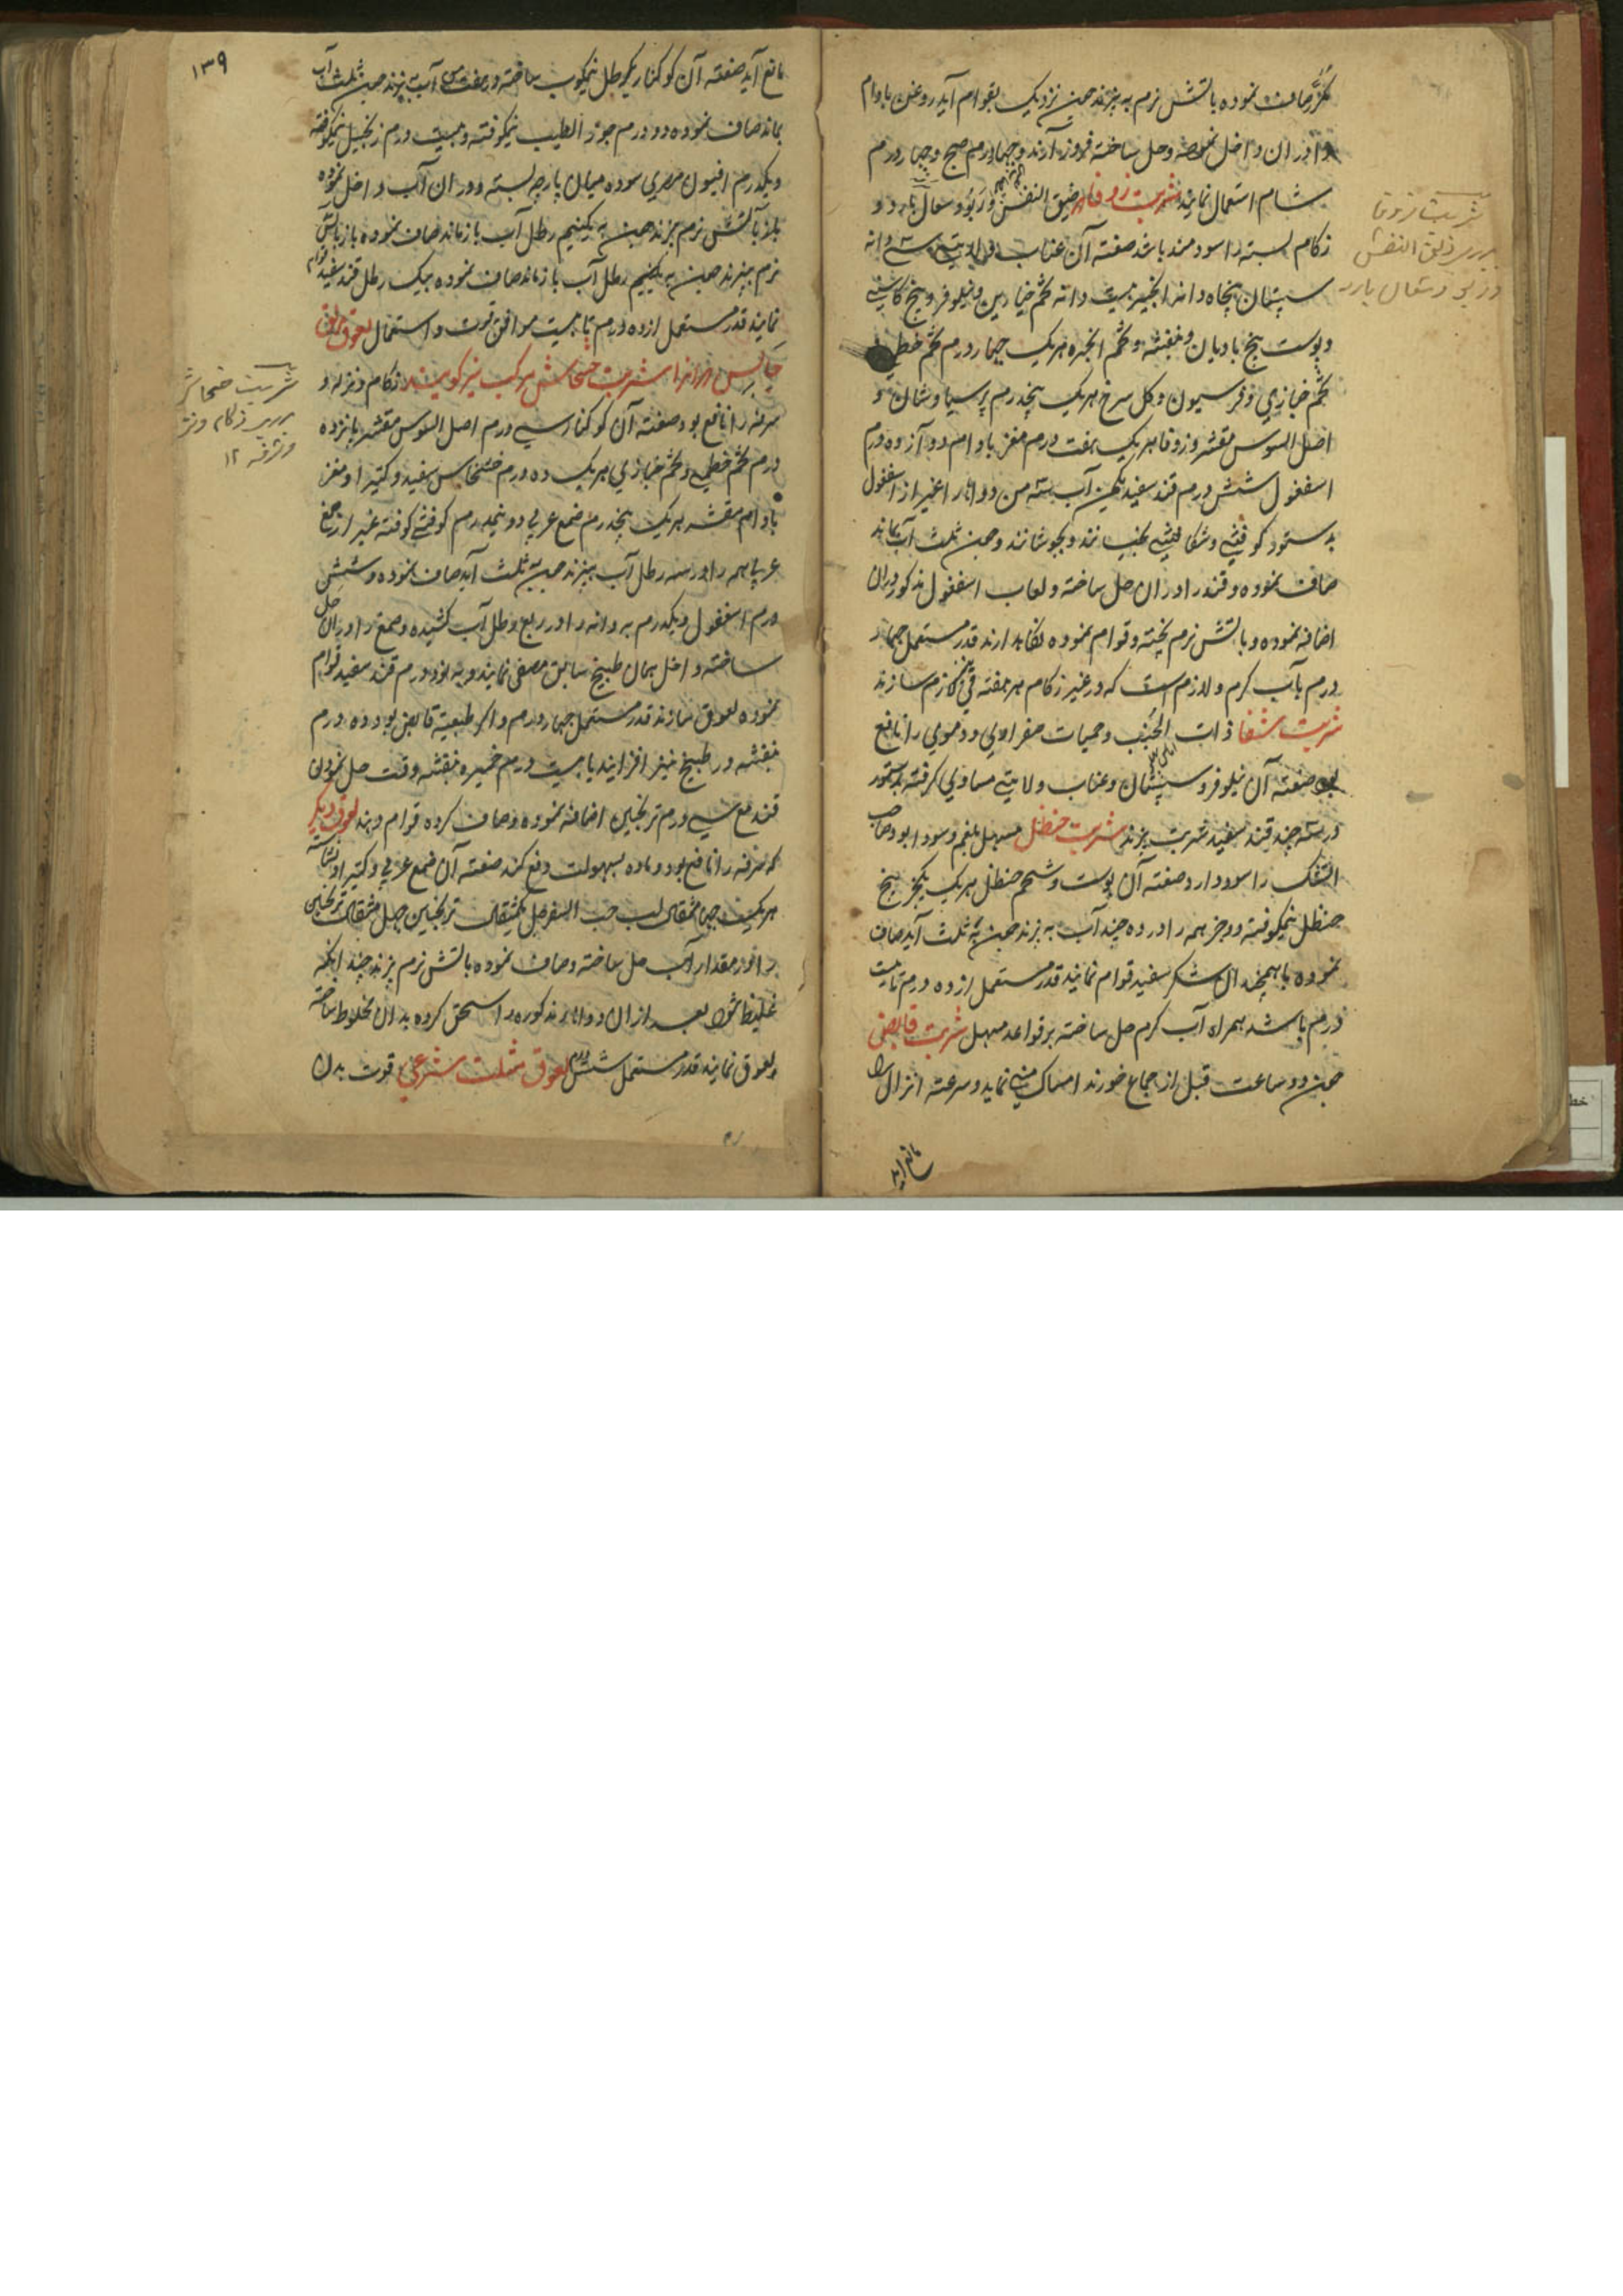 مکرر صاف نموده باتش نرم به پزند چون نزدیک بقوام آید روغن بادام
دران داخل نموده و حل ساخته فرود آرند و چهار درم صبح و چهار درم
شام استعمال نمایند شربت زوفا ضیق النفس و ربو و سعال بارد و
زکام بسته را سودمند باشد صفته آن عناب ولایتی سی دانه
سپستان پنجاه دانه انجیر بیست دانه تخم خیارین و نیلوفر و بیخ کاسنی
و پوست بیخ بادیان و بنفشه و تخم انجره هر یک چهار درم تخم خطمی
تخم خبازی و فرسیون و گل سرخ هر یک پنجدرم پرسیاوشان و
اصل السوس مقشر و زوفا هر یک هفت درم مغز بادام دوازده درم
اسفغول شش درم قند سفید یکمن آب سه من دواها را غیر از اسفغول
بدستور کوفتنی و شکافتنی بخیسانند و بجوشانند و چون ثلث آب بماند
صاف نموده و قند را دران حل ساخته و لعاب اسفغول مذکور دران
اضافه نموده و باتش نرم پخته و قوام نموده نگاهدارند قدر مستعمل چهار
درم بآب گرم و لازم است که در غیر زکام هر هفته قی لازم سازند
شربت شفا ذات الجنب و حمیات صفراوی و دموی را نافع
بود صفته آن نیلوفر و سپستان و عناب ولایتی مساوی گرفته بدستور
در سه چند قند سفید شربت پزند شربت حنظل مسهل بلغم و سودا بود و صاحب
النفک را سود دارد صفته آن پوست و شحم حنظل هر یک یکجز بیخ
حنظل نیمکوفته دو جز همه را در ده چند آب به پزند چون به ثلث آید صاف
نموده با همچندان شکر سفید قوام نمایند قدر مستعمل از ده درم تا بیست
درم باشد همراه آب گرم حل ساخته بر قواعد مسهل شربت قابضی
چون دو ساعت قبل از جماع خورند امساک منی نماید و سرعت انزال را
مانع آید
شربت زوفا
برای ضیق النفس
و ربو و سعال بارد
۱۳۹
مانع آید صفته آن کوکنار یکرطل نیمکوب ساخته در هفت من آب به پزند چون ثلث آب
بماند صاف نموده دو درم جوز الطیب نیمکوفته و بیست درم زنجبیل نیمکوفته
و یکدرم افیون مصری سوده میان پارچه بسته دران آب داخل نموده
باز باتش نرم بپزند چون به یکنیم رطل آب باز ماند صاف نموده باز باتش
نرم بپزند چون به یکنیم رطل آب باز ماند صاف نموده بیک رطل قند سفید قوام
نمایند قدر مستعمل از ده درم تا بیست موافق قوت و استعمال لعوق
و این را شربت خشخاش مرکب نیز گویند زکام و نزله و
سرفه را نافع بود صفته آن کوکنار سی درم اصل السوس مقشر پانزده
درم تخم خطمی و تخم خبازی هر یک ده درم خشخاش سفید و کتیرا و مغز
بادام مقشر هر یک پنجدرم صمغ عربی دو نیمدرم کوفتنی کوفته غیر از صمغ
عربی همه را در سه رطل آب بپزند چون به ثلث آید صاف نموده و شش
درم اسفغول و یکدرم به دانه را در ربع رطل آب کشیده و صمغ را دران حل
ساخته داخل همان طبیخ سابق مصفی نمایند و به نود درم قند سفید قوام
نموده لعوق سازند قدر مستعمل چهار درم و اگر طبیعت قابض بود ده درم
بنفشه در طبیخ نیز افزایند یا بیست درم خمیره بنفشه وقت حل نمودن
قند مع سی درم ترنجبین اضافه نموده و صاف کرده قوام دهند لعوق دیگر
که سرفه را نافع بود و ماده بسهولت دفع کند صفته آن صمغ عربی و کتیرا و نشاسته
هر یک چهار مثقال لب حب السفرجل یکمثقال ترنجبین چهل مثقال ترنجبین
را در مقدار آب حل ساخته و صاف نموده باتش نرم پزند چندانکه
غلیظ شود بعد ازان دواهای مذکوره را سحق کرده بدان مخلوط ساخته
لعوق نمایند قدر مستعمل شش درم لعوق مثلث شرعی قوت بدن
شربت خشخاش
برای زکام و نزله
و سرفه ۱۲